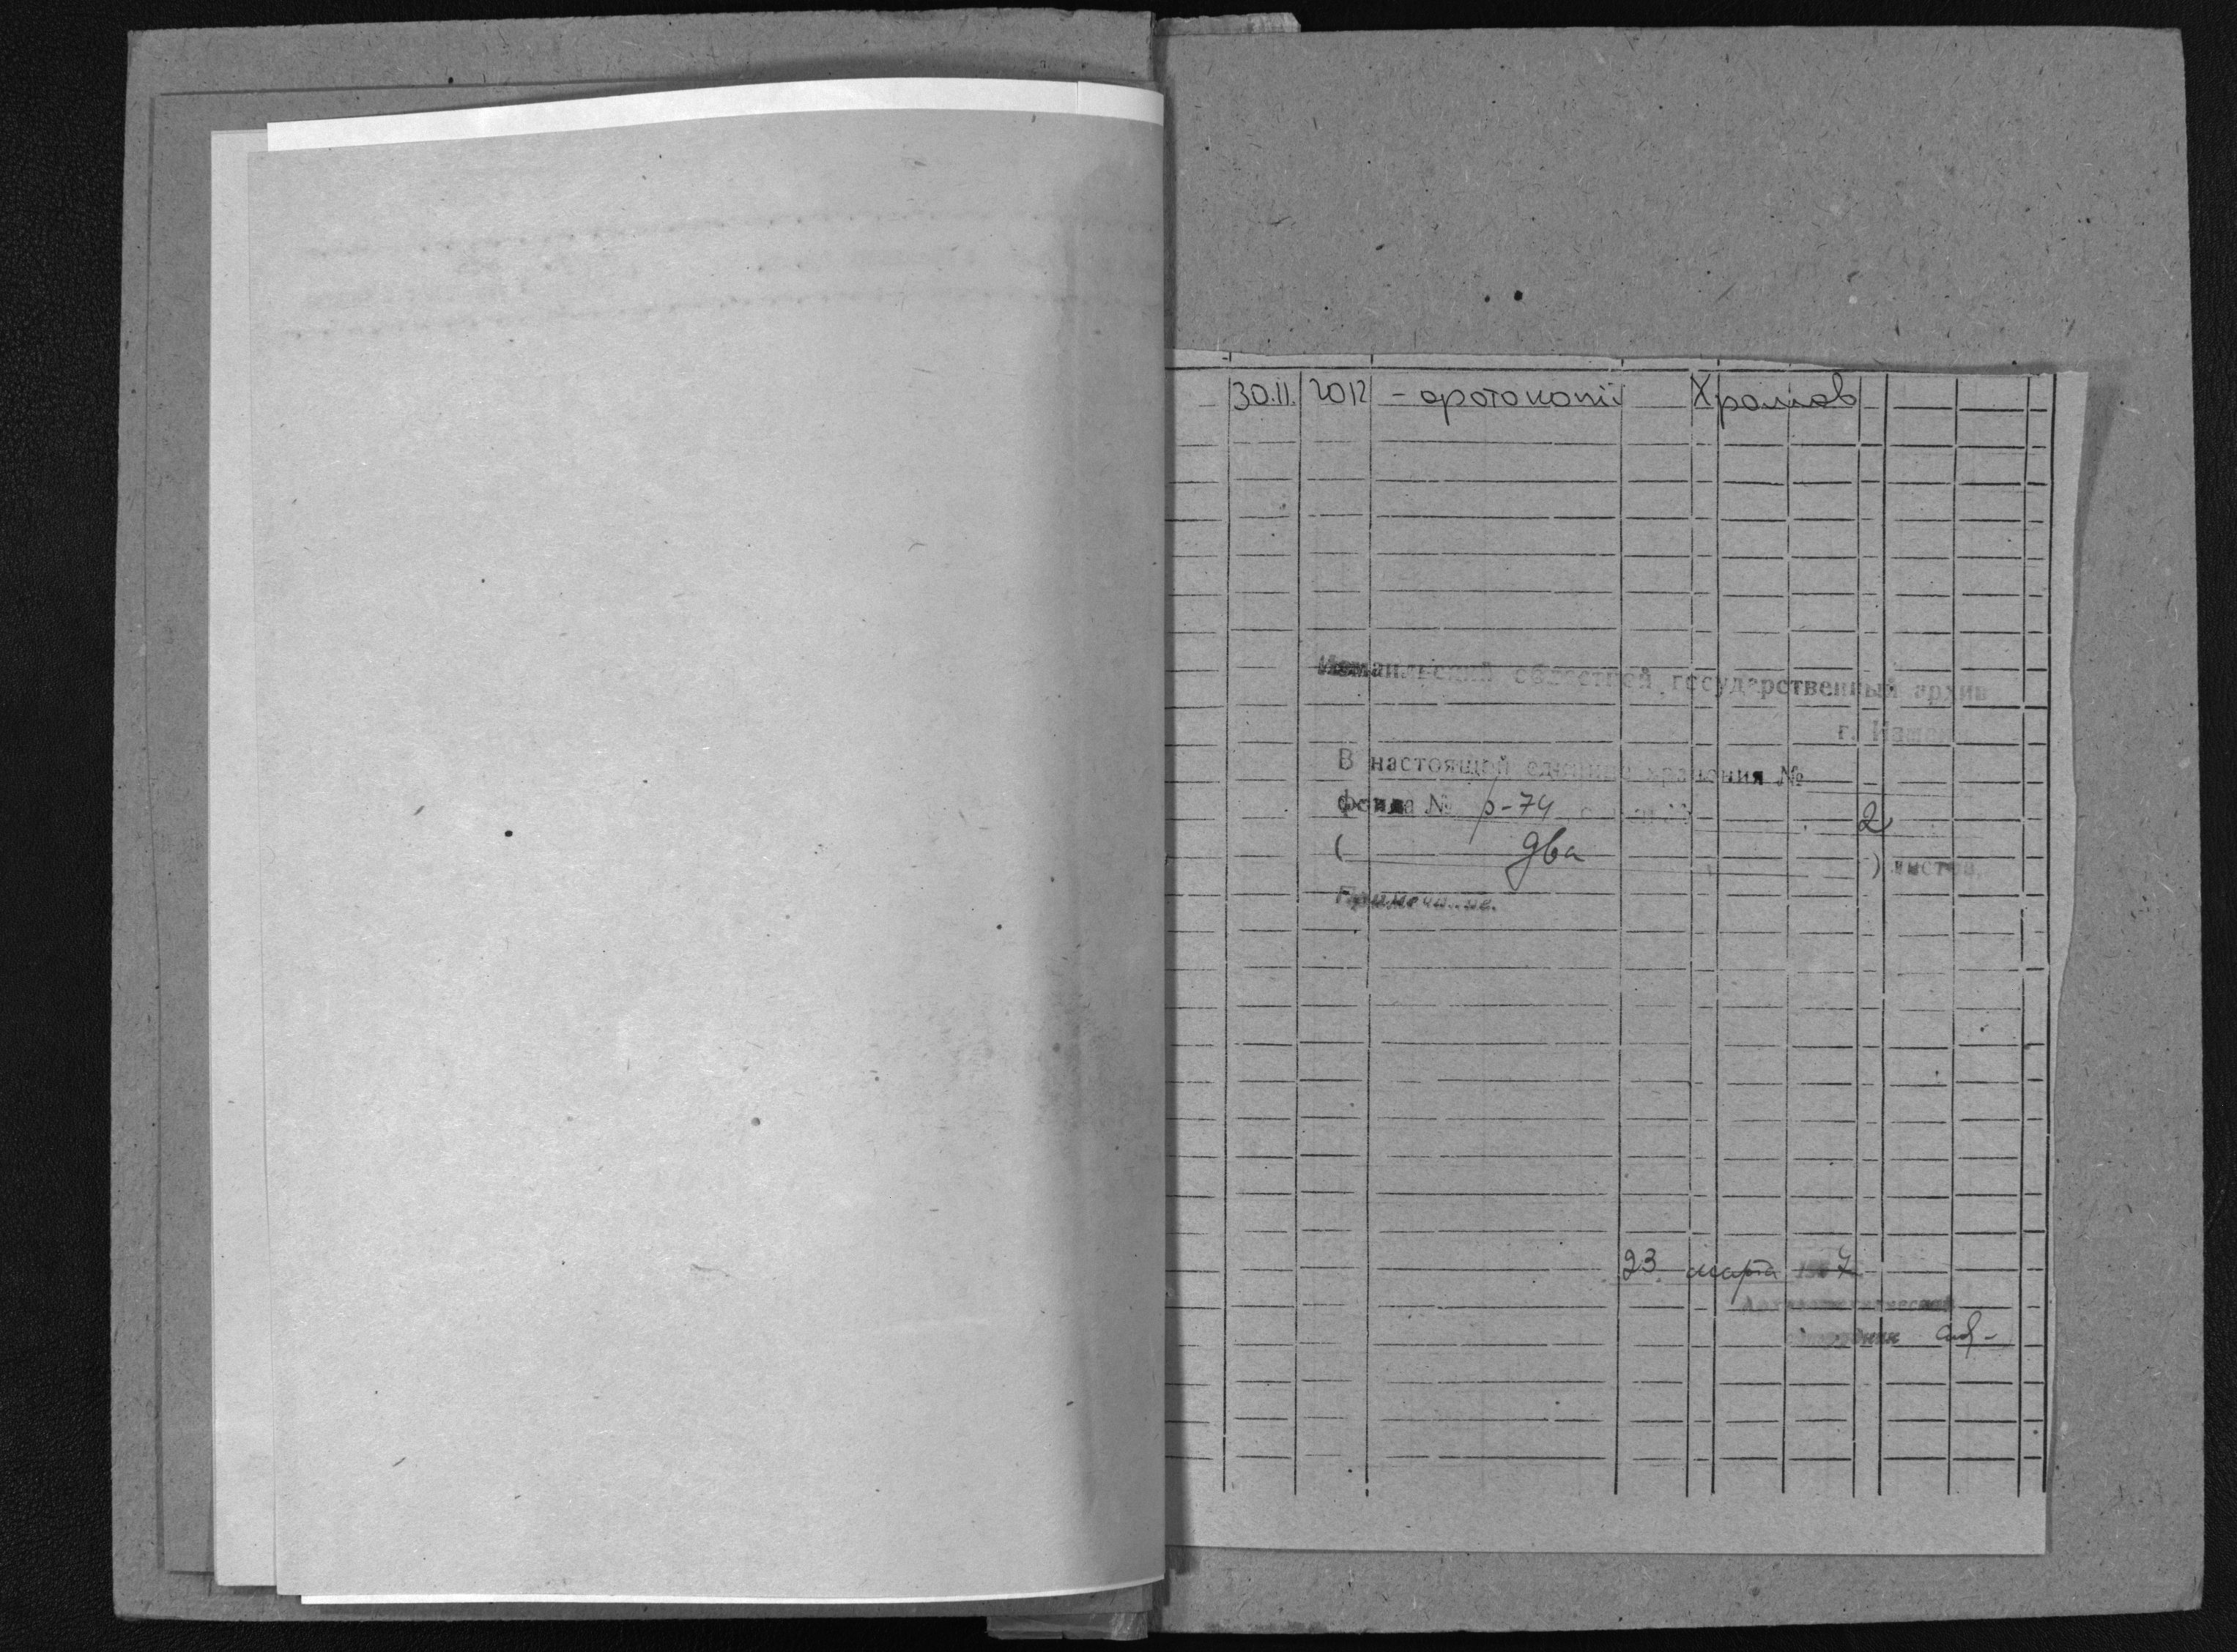 30.11. 2012 - фотокопії Хромов
Измаильский областной государственный архив
г. Измаил
В настоящей единице хранения №
фонда № р-74 2
( два ) листов.
Примечание.
23 марта 7